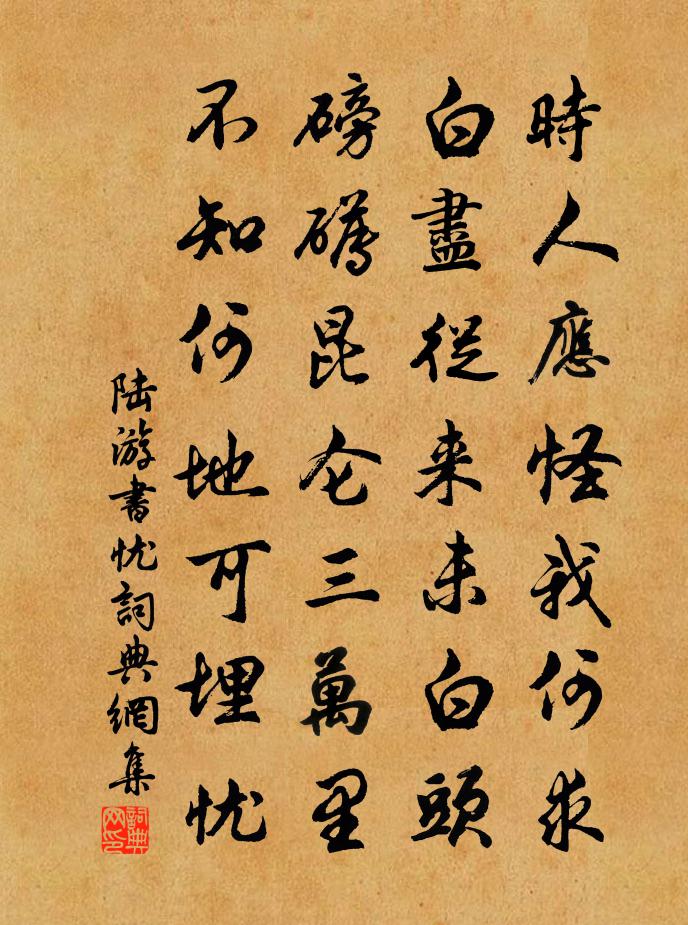 時人應怪我何求
白盡從来未白頭
磅礴昆仑三萬里
不知何地可埋忧
陆游書忧詞典網集
詞典网印